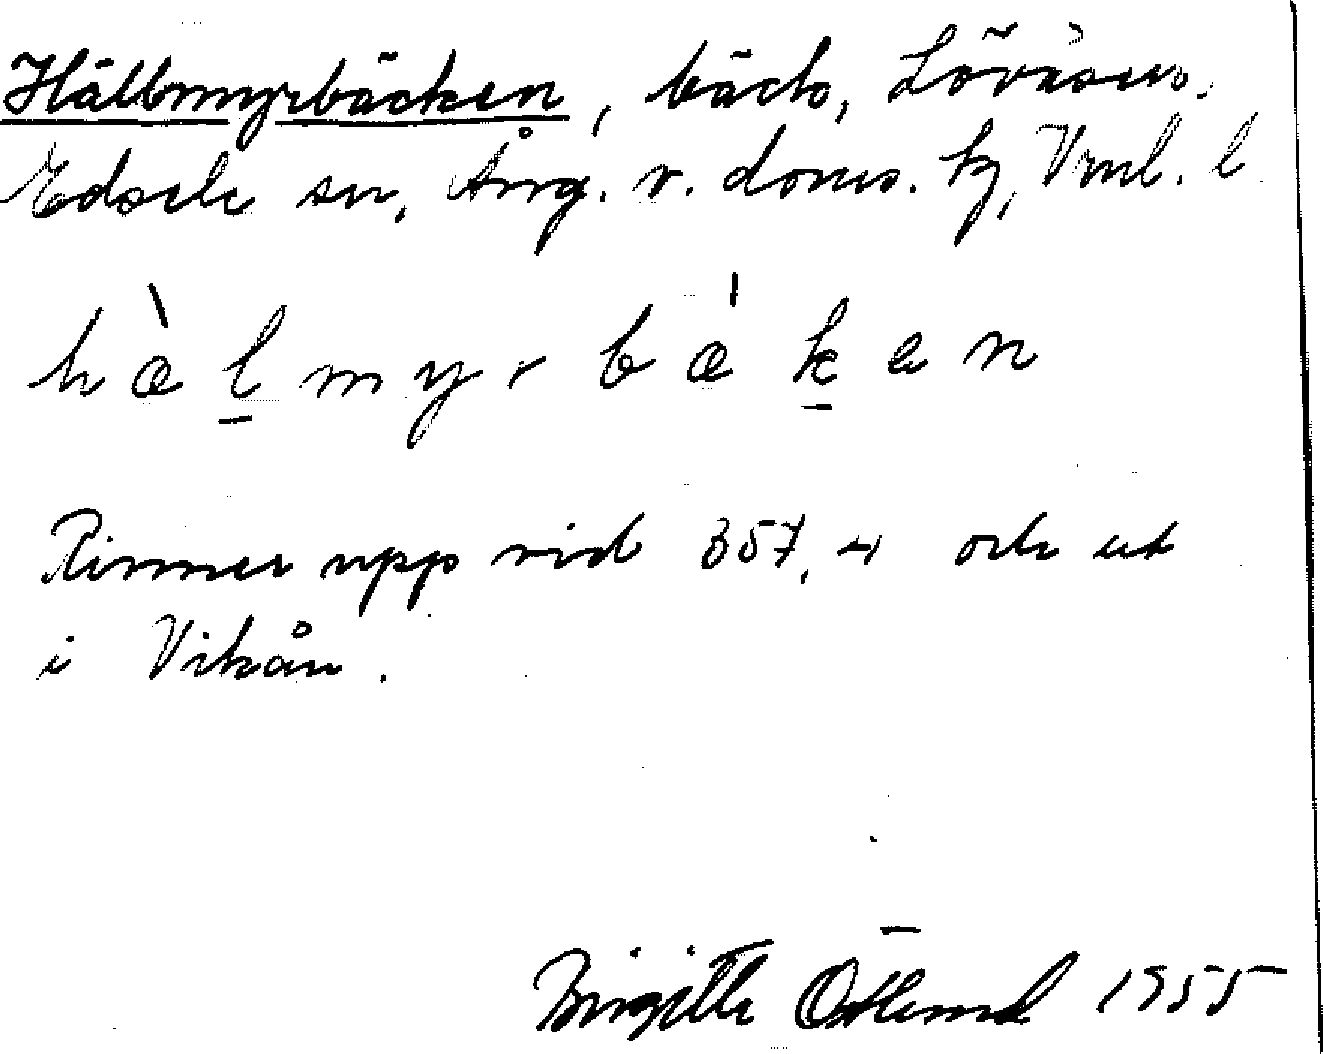 Hällbmyrbäcken, bäck, Lövåsen.
Edsele sn, Ång. v. doms. hg, Vnl. l
hæ̀l̠myrbæ̀k̠en
Rinner upp vid 357,4 och ut
i Vikån.
Birgitta Östlund 1955